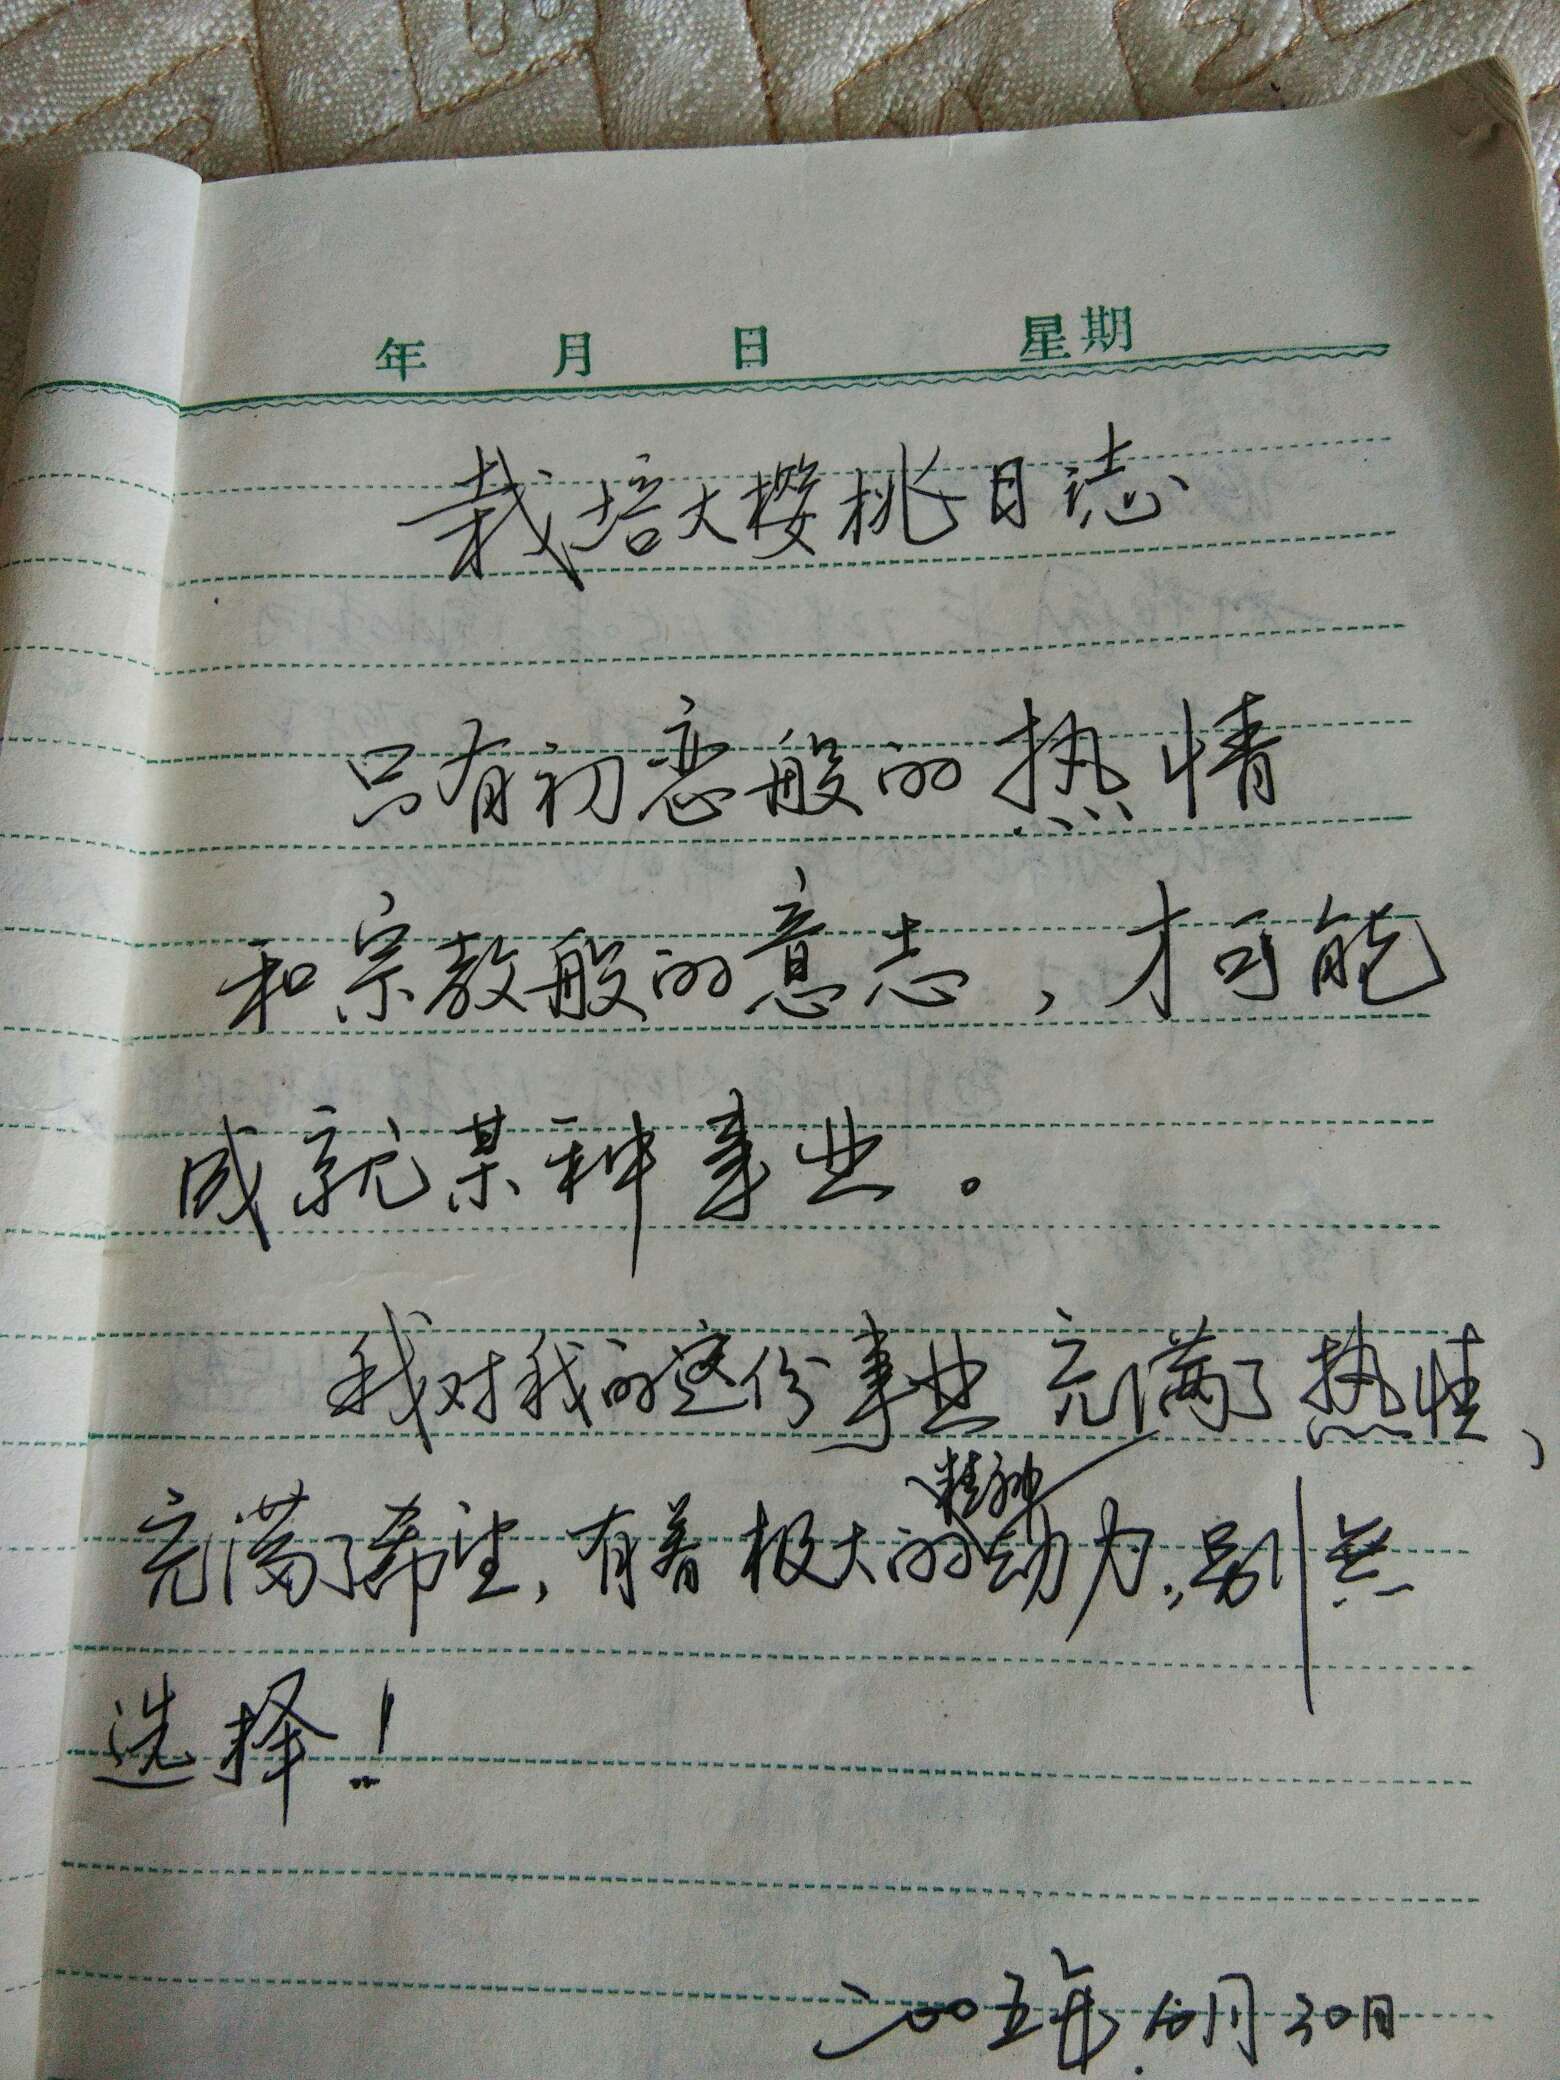 年 月 日 星期
栽培大樱桃日誌
只有初恋般的热情
和宗教般的意志，才可能
成就某种事业。
我对我的这份事业充满了热情、
充满了希望，有着极大的精神动力，别無
选择！
二00五年 月30日